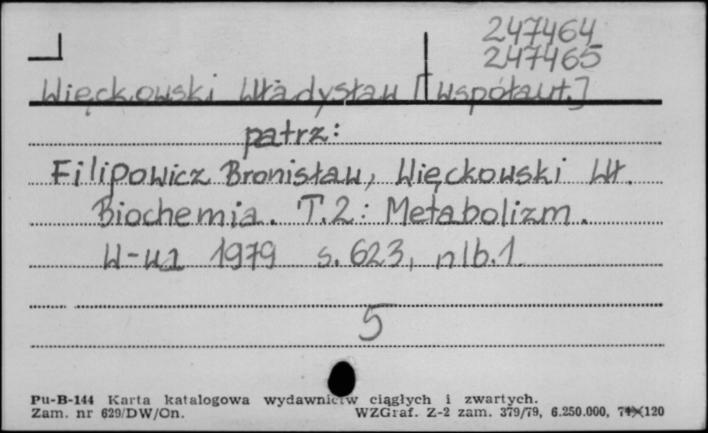 247464
247465
Więckowski Władysław [współaut.]
patrz:
Filipowicz Bronisław, Więckowski Wł.
Biochemia. T.2: Metabolizm.
W-wa 1979 s. 623, nlb.1.
5
Pu-B-144 Karta katalogowa wydawnictw ciągłych i zwartych.
Zam. nr 629/DW/On. WZGraf. Z-2 zam. 379/79, 6.250.000, 120